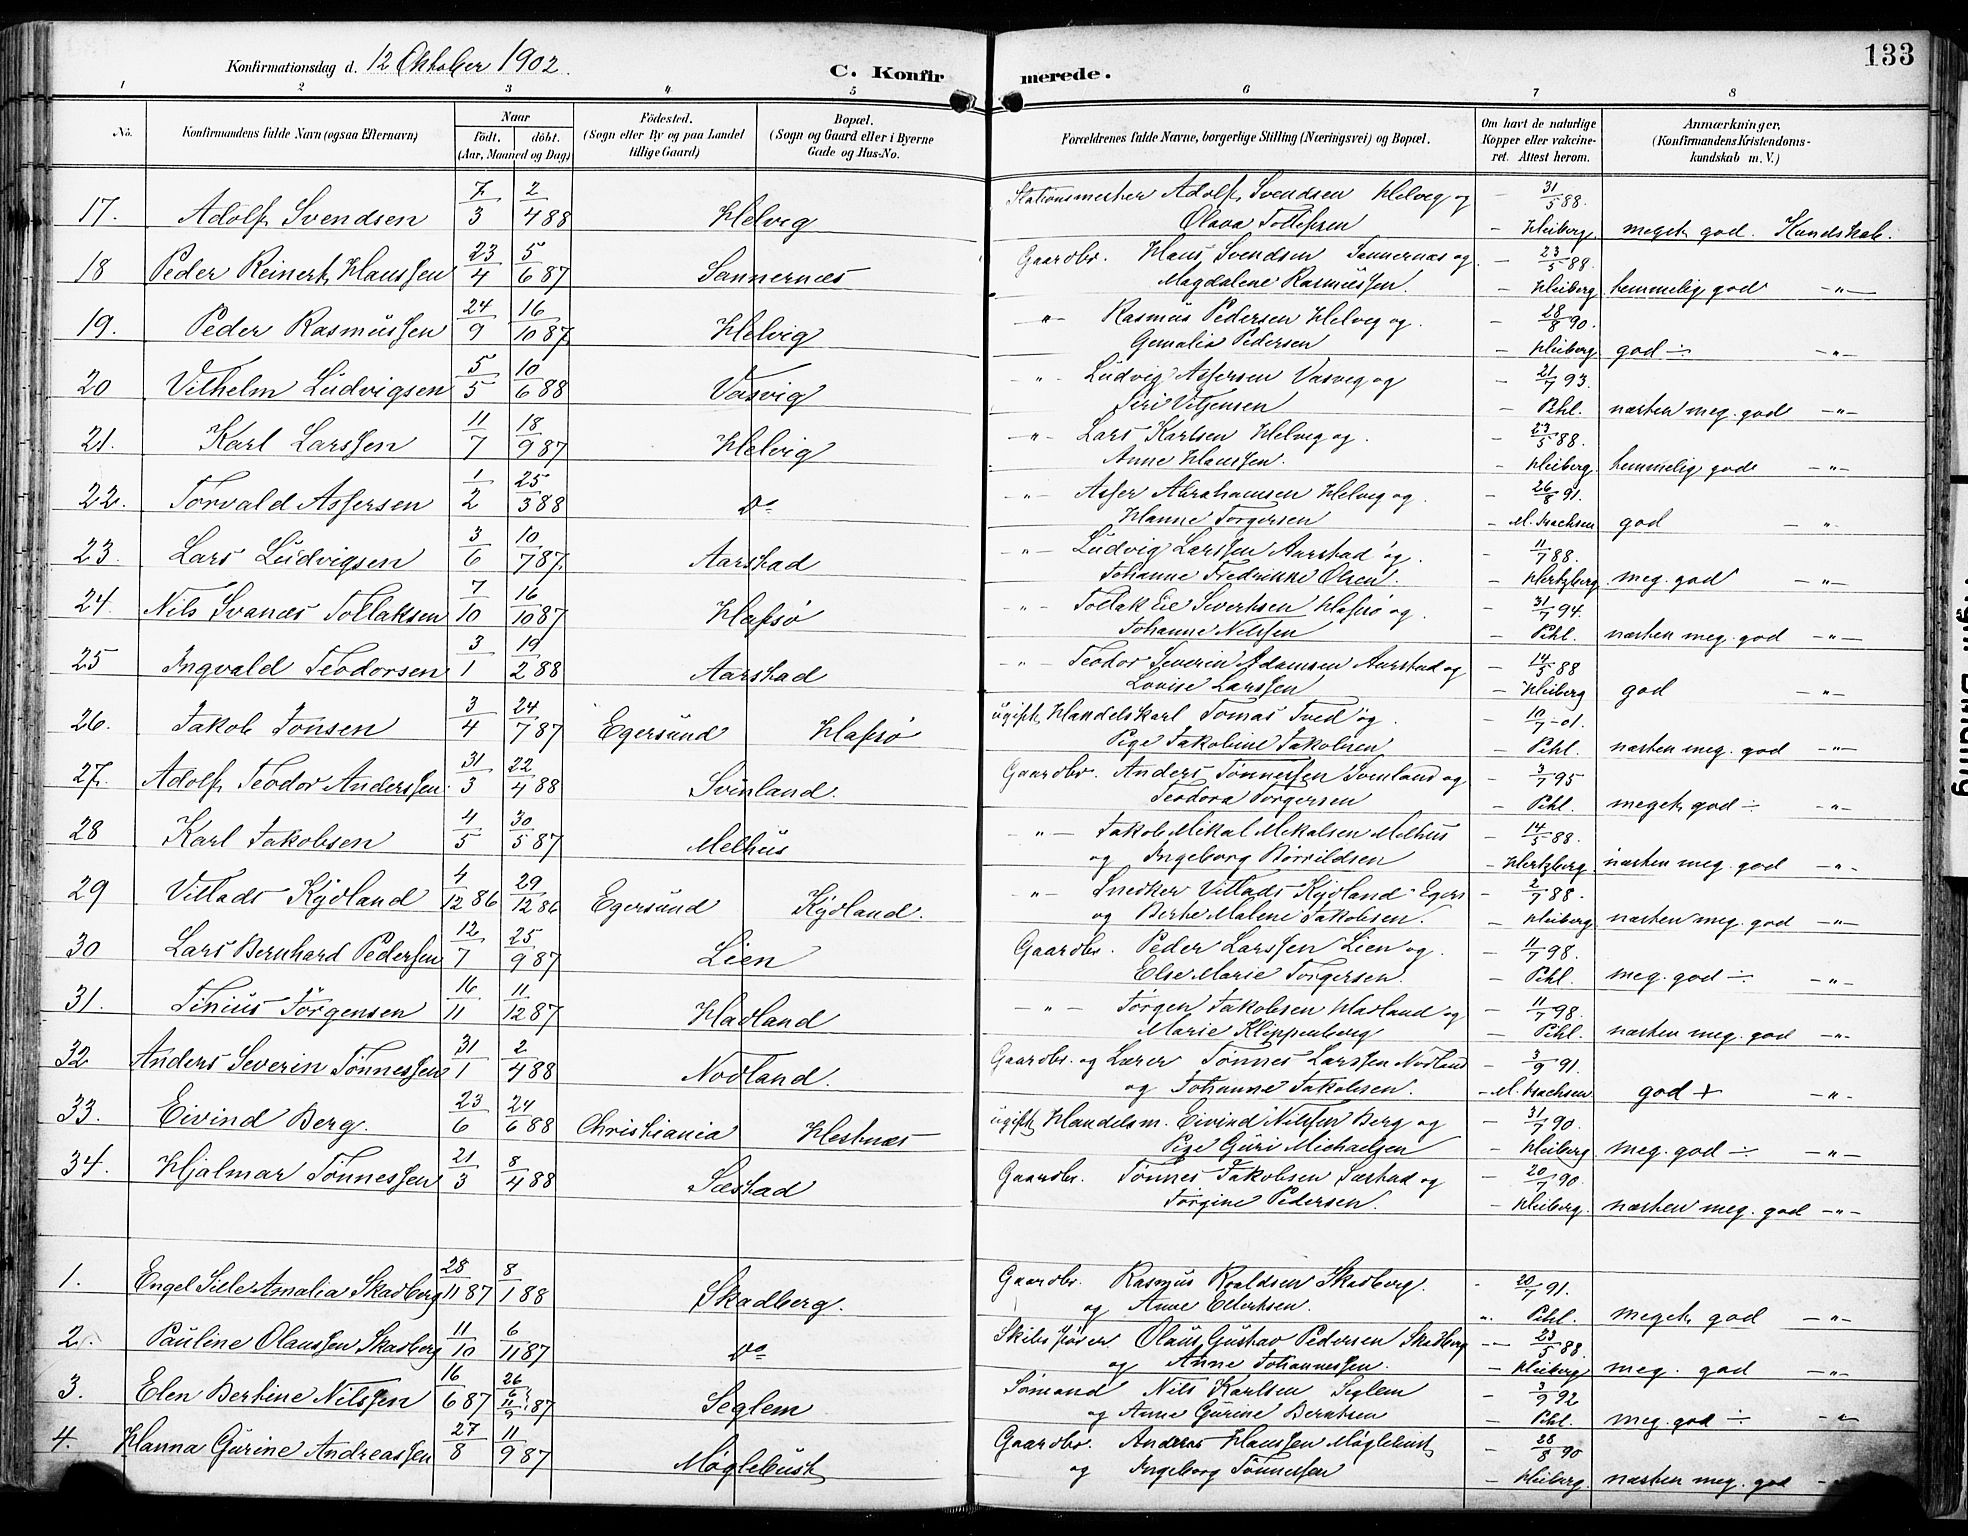 133
Konfirmationsdag d. 12 Oktober 1902. C. Konfirmerede.
1 2 3 4 5 6 7 8
No. Konfirmandens fulde Navn (ogsaa Efternavn) Naar født. døbt. (Aar, Maaned og Dag) Fødested. (Sogn eller By og paa Landet tillige Gaard) Bopæl. (Sogn og Gaard eller i Byerne Gade og Hus-No. Forældrenes fulde Navne, borgerlige Stilling (Næringsvei) og Bopæl. Om havt de naturlige Kopper eller vakcineret. Attest herom. Anmærkninger, (Konfirmandens Kristendomskundskab m. V.)
17. Adolf Svendsen 7/3 2/4 88 Helvig Stationsmester Adolf Svendsen Helveg og - 31/5 88.
Olava Tollefsen - Heiberg. meget god. Kundskab.
18 Peder Reinert Hanssen 23/4 5/6 87 Sannernæs Gaardbr. Hans Svendsen Sannernæs og - 23/5 88.
Magdalene Rasmussen. - Heiberg hemmelig god -"-
19. Peder Rasmussen 24/9 16/10 87. Helvig -"- Rasmus Pedersen Helveg og. - 28/8 90.
Gemalie Pedersen - Heiberg god ÷ -"-
20 Vilhelm Ludvigsen 5/5 10/6 88 Vasvig -"- Ludvig Assersen Vasveg og - 21/7 93.
Siri - Pihl. næsten meg. god -"-
21. Karl Larssen 11/7 18/9 87 Helvig -"- Lars Karlsen Helveg og. - 23/5 88.
Anne Hanssen. - Heiberg. hemmelig god -"-
22. Torvald Assersen 1/2 25/3 88 Do -"- Asser Abrahamsen Helveg og. - 26/8 91.
Hanne Torgersen - M. Isachsen god -"-
23. Lars Ludvigsen 3/6 10/7 87. Aarstad -"- Ludvig Larssen Aarstad og. - 11/7 88.
Johanne Fredrikke Olsen. - Hertzberg. meg. god -"-
24. Nils Svanæs Tollaksen 7/10 16/10 87 Hafsø -"- Tollak Eie Sivertsen Hafsø og - 31/7 94.
Johanne Nilssen - Pihl. næsten meg. god -"-
25 Ingvald Teodorsen 3/1 19/2 88 Aarstad -"- Teodor Severin Adamsen Aarstad og - 14/5 88
Lovise Larssen - Heiberg god -"-
26. Jakob Jonsen 3/4 24/7 87 Egersund Hafsø ugift Handelskarl Tomas Tved og. - 10/7 -01.
Pige Jakobine Jakobsen - Pihl. næsten meg. god -"-
27. Adolf Teodor Anderssen 31/3 22/4 88 Svinland. Gaardbr. Anders Tønnessen Svinland og - 3/7 95
Teodora Torgersen - Pihl. meget god ÷ -"-
28 Karl Jakobsen 4/5 30/5 87 Melhus -"- Jakob Mikal Mikalsen Melhus - 14/5 88.
og Ingeborg Børrildsen - Hertzberg. næsten meg. god -"-
29 Villads Kydland 4/12 86 29/12 86 Egersund Kydland. -"- Snedker Villads Kydland Egers - 2/7 88.
og Berte Malene Jakobsen. - Heiberg. næsten meg. god -"-
30 Lars Bernhard Pedersen 12/7 25/9 87 Lien Gaardbr. Peder Larssen Lien og. - 11/7 98.
Else Marie Torgersen. - Pihl. meg. god ÷ -"-
31. Tinius Jørgensen 16/11 11/12 87 Hadland -"- Jørgen Jakobsen Hadland og - 11/7 98.
Marie Klippenberg - Pihl. næsten meg. god -"-
32 Anders Severin Tønnessen 31/1 2/4 88 Nodland. Gaardbr. og Lærer Tønnes Larssen Nodland - 3/9 91.
og Johanne Jakobsen. - M. Isachsen god + -"-
33. Eivind Berg. 23/6 24/6 88 Christiania Hestnæs ugift Handelsm. Eivind Nilssen Berg og - 31/7 90.
Pige Guri Michaelsen - Heiberg. meg. god ÷ -"-
34. Hjalmar Tønnessen 21/3 8/4 88 Sæstad Gaardbr. Tønnes Jakobsen Sæstad og - 20/7 90.
Torgine Pedersen. - Heiberg. næsten meg. god -"-
1. Engel Sille Amalia Skadberg 28/11 87 8/1 88 Skadberg. Gaardbr. Rasmus Roaldsen Skadberg. - 20/7 91.
og Anne Eilertsen. ". Pihl. meget god -"-
2. Pauline Olaussen Skadberg 11/10 6/11 87 Do Skibsfører Olaus Gustav Pedersen Skadberg -- 23/5 88.
og Anne Johannessen. - Heiberg meg. god -"-
3. Elen Bertine Nilssen 16/6 87 26/6 11/9 87 Seglem Sømand Nils Karlsen Seglem - 3/9 92
og Anne Gurine Berntsen - Pihl. meg. god ÷ -"-
4. Hanna Gurine Andreassen 27/8 11/9 87 Møglebust Gaardbr. Andreas Hanssen Møglebust - 28/8 90
og Ingeborg Tønnessen - Heiberg. næsten meg. god -"-